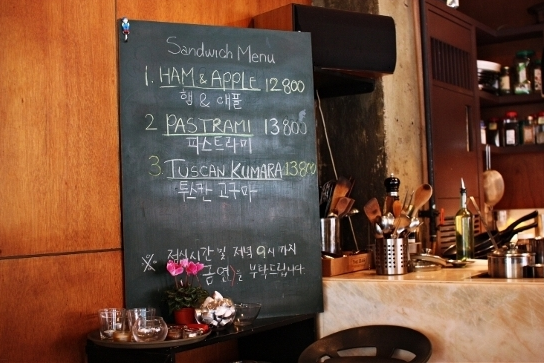 Sandwich Menu
1. HAM & APPLE 12.800
햄 & 애플
2 PASTRAMI 13800
파스트라미
3. TUSCAN KUMARA 13.800
투스칸 고구마
※ 점심시간 및 저녁 9시 까지
금연을 부탁드립니다